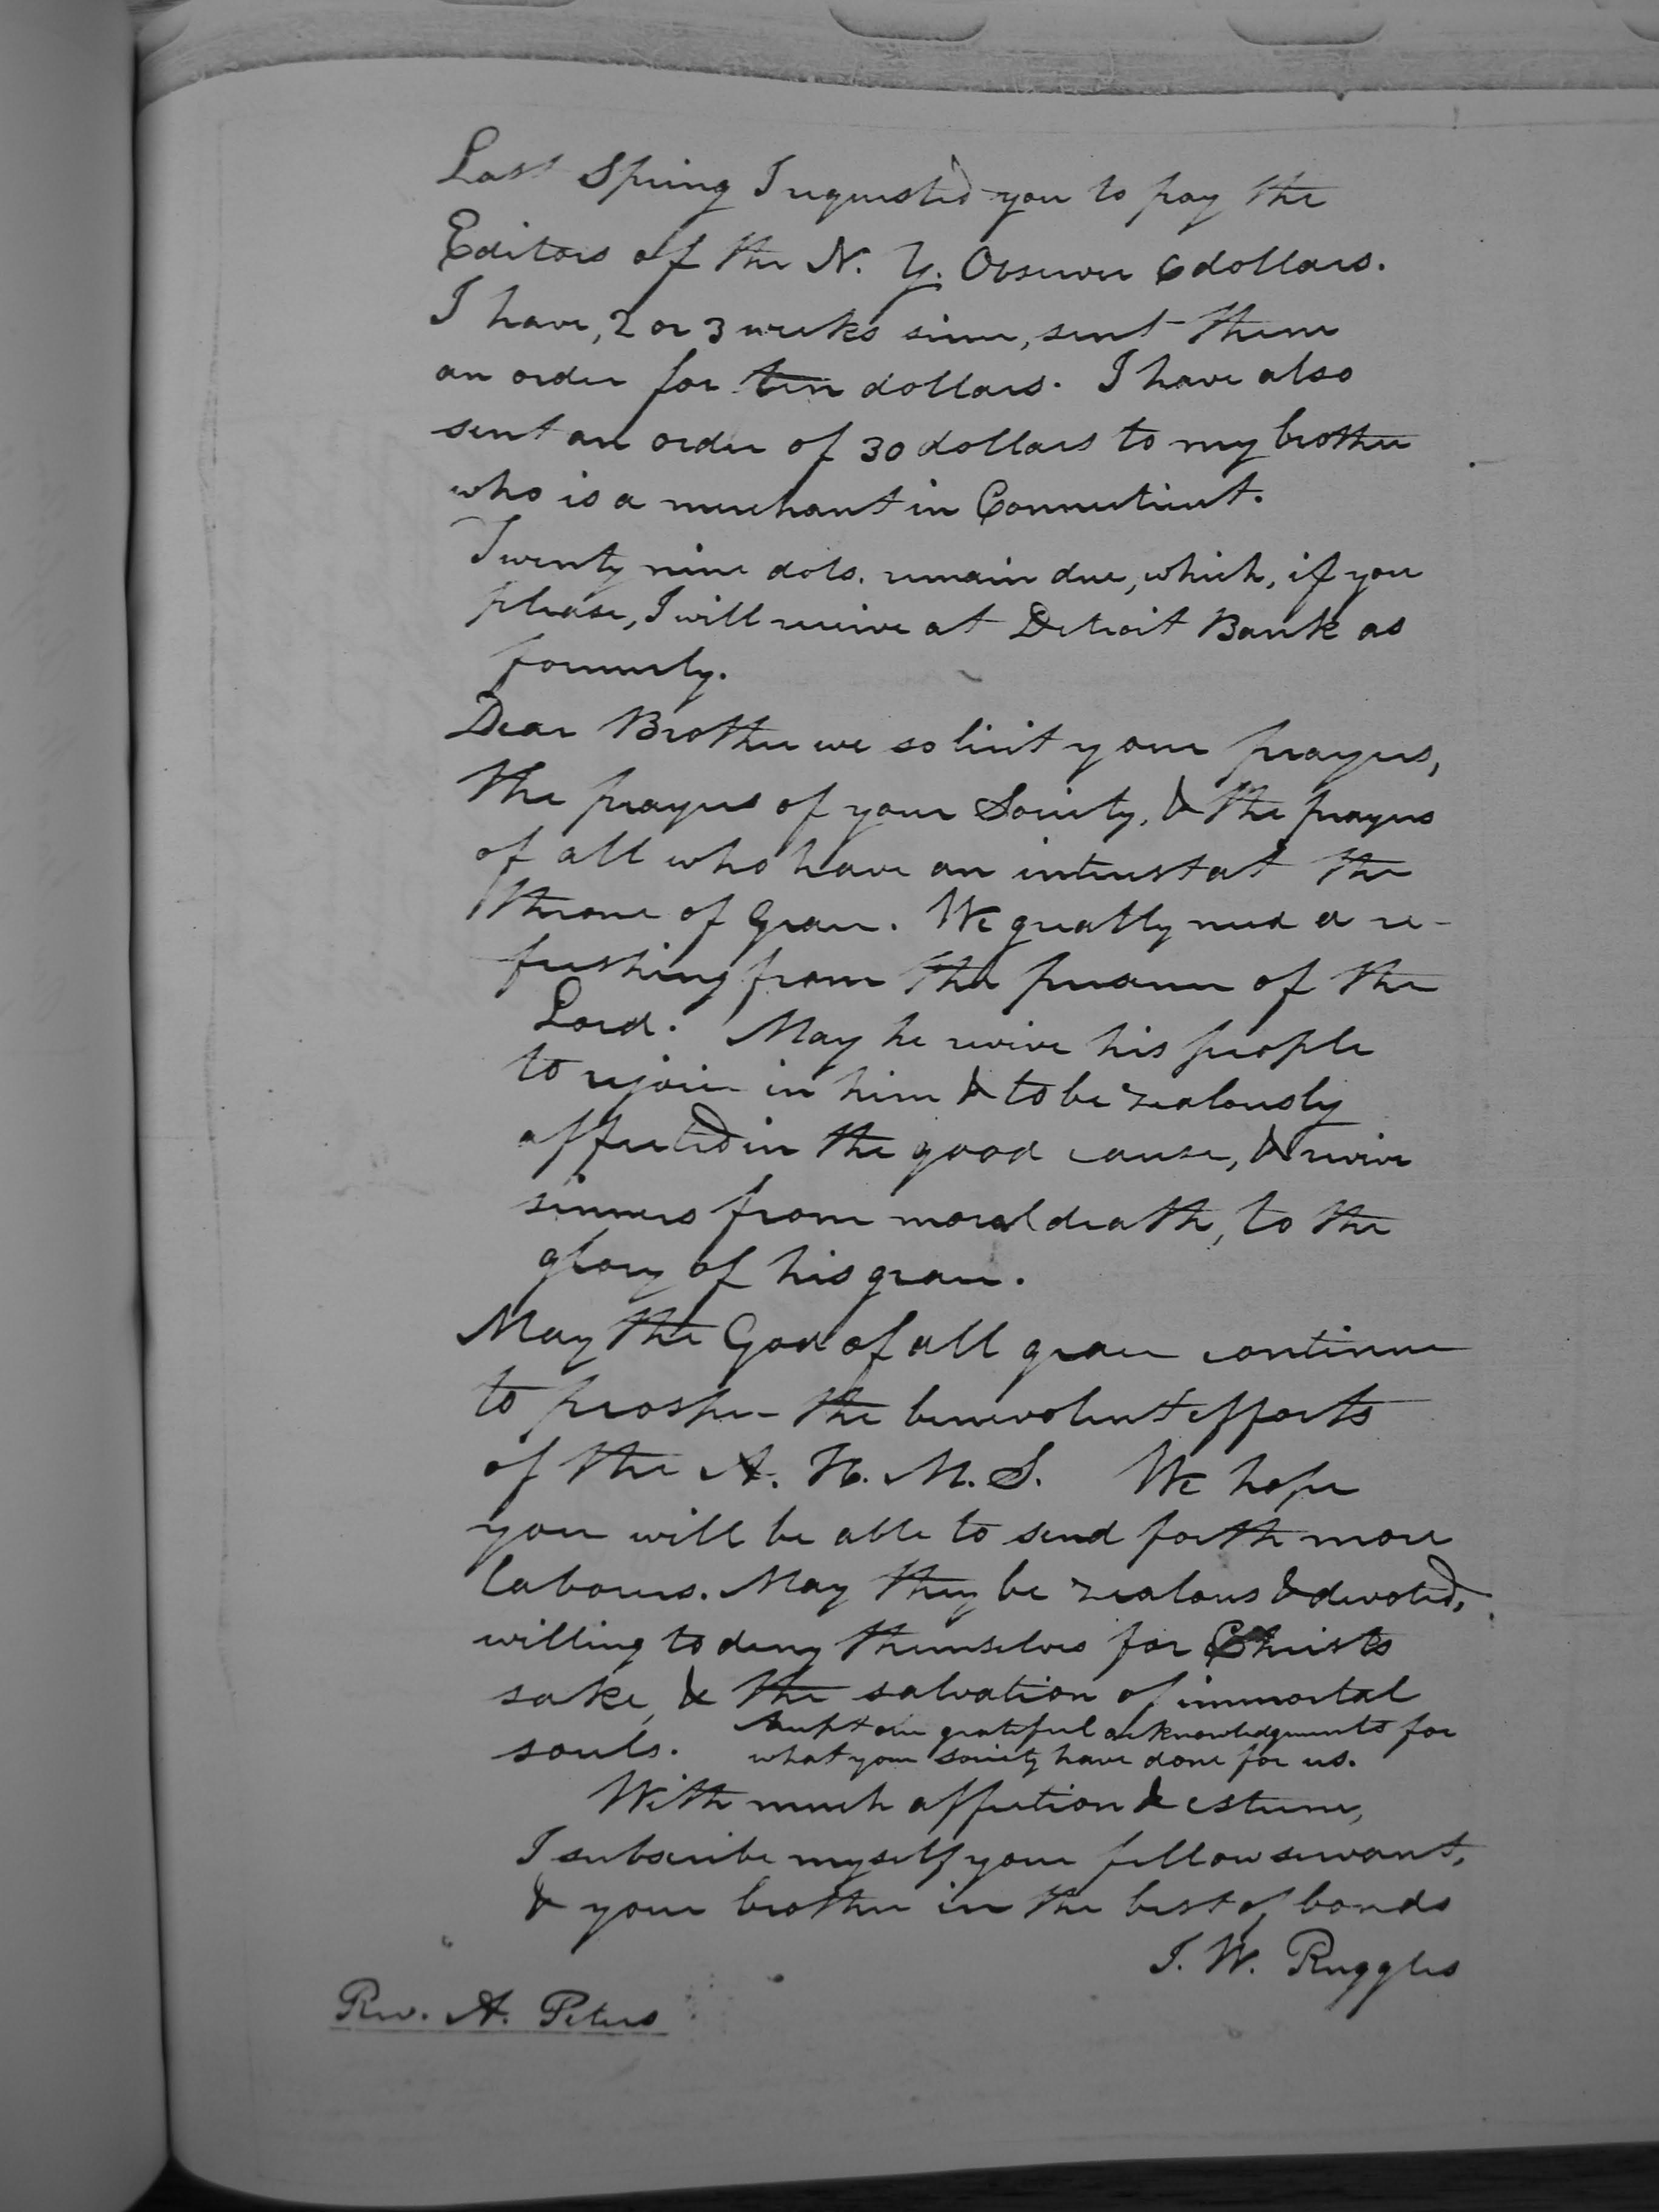 Last Spring I requested you to pay the
Editors of the N. Y. Observer 6 dollars.
I have, 2 or 3 weeks since, sent them
an order for ten dollars. I have also
sent an order of 30 dollars to my brother
who is a merchant in Connecticut.
Twenty nine dols. remain due, which, if you
please, I will receive at Detroit Bank as
formerly.
Dear Brother we solicit your prayers,
the prayers of your Society, & the prayers
of all who have an interest at the
throne of Grace. We greatly need a re-
freshing from the presence of the
Lord. May he revive his people
to rejoice in him & to be zealously
affected in the good cause, & revive
sinners from moral death, to the
glory of his grace.
May the God of all grace continue
to prosper the benevolent efforts
of the A. H. M. S. We hope
you will be able to send forth more
labourers. May they be zealous & devoted,
willing to deny themselves for Christs
sake, & the salvation of immortal
souls. Accept our grateful acknowledgments for
what your society have done for us.
With much affection & esteem,
I subscribe myself your fellow servant,
& your brother in the best of bonds
I. W. Ruggles
Rev. A. Peters